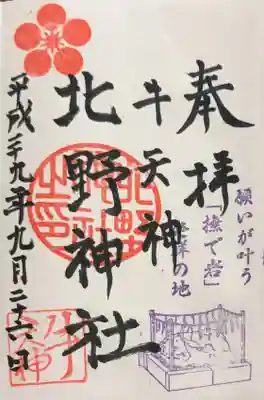 奉拝
願いが叶う
「撫で岩」
発祥の地
牛天神
北野神社
平成二十九年九月二十六日
牛天神